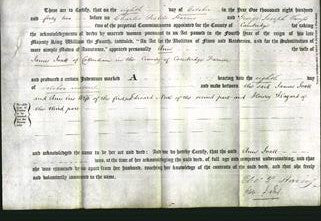 These are to Certify, that on the eighth day of October in the Year of our Lord One thousand eight hundred
and forty two before us
two of the perpetual Commissioners appointed for the County of Cambridge for
taking the acknowledgments of deeds by married women pursuant to an Act passed in the Fourth Year of the reign of his late
Majesty King William the Fourth, intituled, "An Act for the Abolition of Fines and Recoveries, and for the Substitution of
more simple Modes of Assurance," appeared personally Ann the wife of
James Ivatt of Cottenham in the County of Cambridge Farmer
and produced a certain Indenture marked A bearing date the eighth day
of October instant and made between the said James Ivatt
and Ann his Wife of the first part of the second part and of
the third part
and acknowledged the same to be her act and deed: And we do hereby Certify, that the said Ann Ivatt
was, at the time of her acknowledging the said deed, of full age and competent understanding, and that
she was examined by us apart from her husband, touching her knowledge of the contents of the said deed, and that she freely
and voluntarily consented to the same.